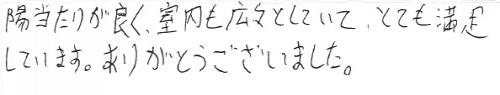 陽当たりが良く、室内も広々としていて、とても満足
しています。ありがとうございました。